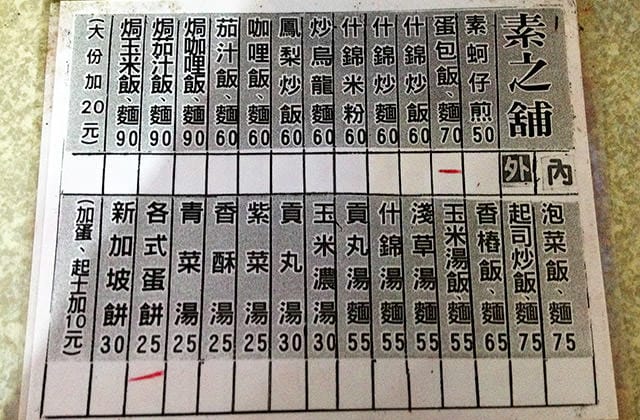 素之舖
素蚵仔煎50
蛋包飯、麵70
什錦炒飯60
什錦炒麵60
什錦米粉60
炒烏龍麵60
鳳梨炒飯60
咖哩飯、麵60
茄汁飯、麵60
焗咖哩飯、麵90
焗茄汁飯、麵90
焗玉米飯、麵90
(大份加20元)
內
外
泡菜飯、麵75
起司炒飯、麵75
香椿飯、麵65
玉米湯飯、麵55
淺草湯麵55
什錦湯麵55
貢丸湯麵55
玉米濃湯30
貢丸湯30
紫菜湯25
香酥湯25
青菜湯25
各式蛋餅25
新加坡餅30
(加蛋、起士加10元)